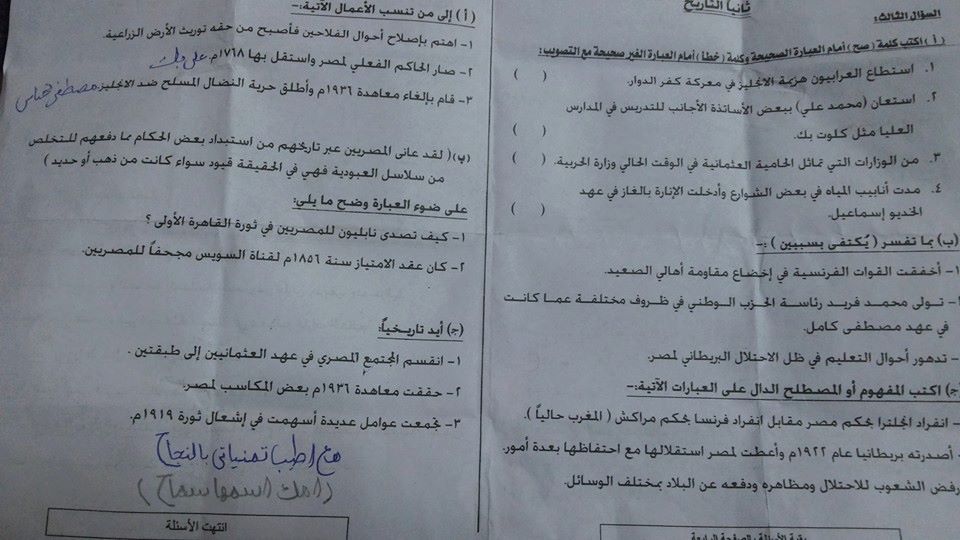 ثانياً التاريخ
السؤال الثالث:
( أ ) اكتب كلمة ( صح ) أمام العبارة الصحيحة وكلمة ( خطأ ) أمام العبارة الغير صحيحة مع التصويب:
١. استطاع العرابيون هزيمة الانجليز في معركة كفر الدوار. ( )
٢. استعان (محمد علي) ببعض الأساتذة الأجانب للتدريس في المدارس
العليا مثل كلوت بك. ( )
٣. من الوزارات التي تماثل الحامية العثمانية في الوقت الحالي وزارة الحربية. ( )
٤. مدت أنابيب المياه في بعض الشوارع وأدخلت الإنارة بالغاز في عهد
الخديو إسماعيل. ( )
(ب) بما تفسر ( يُكتفى بسببين ) :-
١- أخفقت القوات الفرنسية في إخضاع مقاومة أهالي الصعيد.
- تولى محمد فريد رئاسة الحزب الوطني في ظروف مختلفة عما كانت
في عهد مصطفى كامل.
- تدهور أحوال التعليم في ظل الاحتلال البريطاني لمصر.
(ج) اكتب المفهوم أو المصطلح الدال على العبارات الآتية:-
- انفراد انجلترا بحكم مصر مقابل انفراد فرنسا بحكم مراكش ( المغرب حالياً ).
- أصدرته بريطانيا عام ١٩٢٢م وأعطت لمصر استقلالها مع احتفاظها بعدة أمور.
رفض الشعوب للاحتلال ومظاهره ودفعه عن البلاد بمختلف الوسائل.
بقية الأسئلة بالصفحة الرابعة
( أ ) إلى من تنسب الأعمال الآتية:-
١- اهتم بإصلاح أحوال الفلاحين فأصبح من حقه توريث الأرض الزراعية.
٢- صار الحاكم الفعلي لمصر واستقل بها ١٧٦٨م. على بك
٣- قام بإلغاء معاهدة ١٩٣٦م وأطلق حرية النضال المسلح ضد الانجليز. مصطفى
(ب) ( لقد عانى المصريين عبر تاريخهم من استبداد بعض الحكام مما دفعهم للتخلص
من سلاسل العبودية فهي في الحقيقة قيود سواء كانت من ذهب أو حديد )
على ضوء العبارة وضح ما يلى:
١- كيف تصدى نابليون للمصريين في ثورة القاهرة الأولى ؟
٢- كان عقد الامتياز سنة ١٨٥٦م لقناة السويس مجحفاً للمصريين.
(ج) أيد تاريخياً:
١- انقسم المجتمع المصري في عهد العثمانيين إلى طبقتين .
٢- حققت معاهدة ١٩٣٦م بعض المكاسب لمصر.
٣- تجمعت عوامل عديدة أسهمت في إشعال ثورة ١٩١٩م.
مع اطيب تمنياتى بالنجاح
( امك اسمها سماح )
انتهت الأسئلة